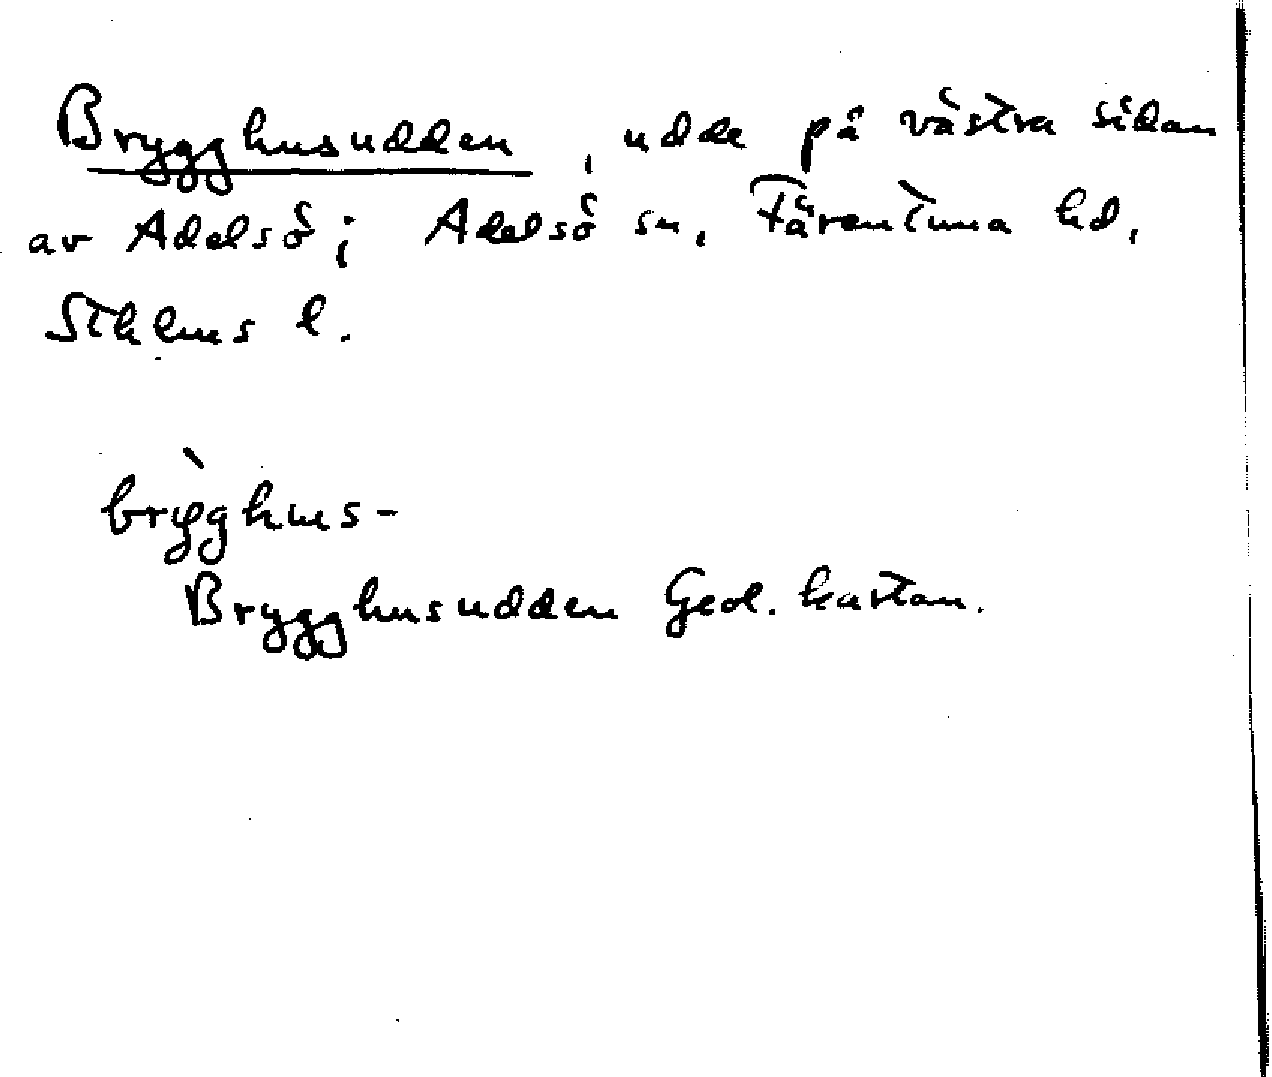 Brygghusudden, udde på västra sidan
av Adelsö; Adelsö sn, Färentuna hd,
Sthlms l.
brỳghus-
Brygghusudden Geol. kartan.